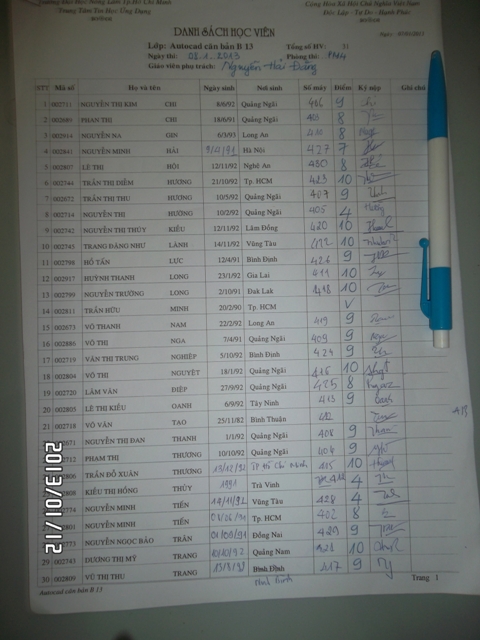 Trung Tâm Tin Học Ứng Dụng
Cộng Hòa Xã Hội Chủ Nghĩa Việt Nam
Độc Lập - Tự Do - Hạnh Phúc
DANH SÁCH HỌC VIÊN
Lớp: Autocad căn bản B 13 Tổng số HV: 31
Ngày thi: 08.1.2013 Phòng thi: PM4
Giáo viên phụ trách: Nguyễn Hải Đăng
STT Mã số Họ và tên Ngày sinh Nơi sinh Số máy Điểm Ký nộp Ghi chú
1 002711 NGUYỄN THỊ KIM CHI 8/6/92 Quảng Ngãi 406 9
2 002689 PHAN THỊ CHI 18/6/91 Quảng Ngãi 8
3 002914 NGUYỄN NA GIN 6/3/93 Long An 8
4 002841 NGUYỄN MINH HẢI 9/4/91 Hà Nội 427 7
5 002807 LÊ THỊ HỒI 12/11/92 Nghệ An 430 8
6 002744 TRẦN THỊ DIỄM HƯƠNG 21/10/92 Tp. HCM 423 10
7 002672 TRẦN THỊ THU HƯƠNG 10/5/92 Quảng Ngãi 407 9
8 002714 NGUYỄN THỊ HƯỜNG 10/2/92 Quảng Ngãi 405 4
9 002742 NGUYỄN THỊ THÚY KIỀU 12/11/92 Lâm Đồng 420 10
10 002745 TRANG ĐĂNG NHƯ LÀNH 14/11/92 Vũng Tàu 422 10
11 002798 HỒ TẤN LỰC 12/4/91 Bình Định 426 9
12 002917 HUỲNH THANH LONG 23/1/92 Gia Lai 411 10
13 002799 NGUYỄN TRƯỜNG LONG 2/10/91 Đak Lak 418 10
14 002811 TRẦN HỮU MINH 20/2/90 Tp. HCM V
15 002673 VÕ THANH NAM 22/2/92 Long An 419 9
16 002886 VÕ THỊ NGA 7/4/91 Quảng Ngãi 409 9
17 002719 VĂN THỊ TRUNG NGHIỆP 5/10/92 Bình Định 424 9
18 002804 VÕ THỊ NGUYỆT 18/1/92 Quảng Ngãi 416 10
19 002720 LÂM VĂN ĐIỆP 27/9/92 Quảng Ngãi 425 8
20 002805 LÊ THỊ KIỀU OANH 6/9/92 Tây Ninh 413 9
21 002718 VÕ VĂN TẠO 25/11/82 Bình Thuận
NGUYỄN THỊ ĐAN THANH 1/1/92 Quảng Ngãi 408 9
002712 PHẠM THỊ THƯƠNG 10/10/92 Quảng Ngãi 404 9
TRẦN ĐỖ XUÂN THƯƠNG 13/12/92 TP Hồ Chí Minh 415 10
KIỀU THỊ HỒNG THỦY 1991 Trà Vinh 4
NGUYỄN MINH TIẾN 14/11/92 Vũng Tàu 428 4
NGUYỄN MINH TIẾN Tp. HCM 402 8
NGUYỄN NGỌC BẢO TRÂN 01/09/91 Đồng Nai 429 9
29 002743 DƯƠNG THỊ MỸ TRANG 10/10/92 Quảng Nam 10
30 002809 VŨ THỊ THU TRANG Bình Định 417 9
Ninh Bình
Autocad căn bản B 13 Trang 1
2013/01/12